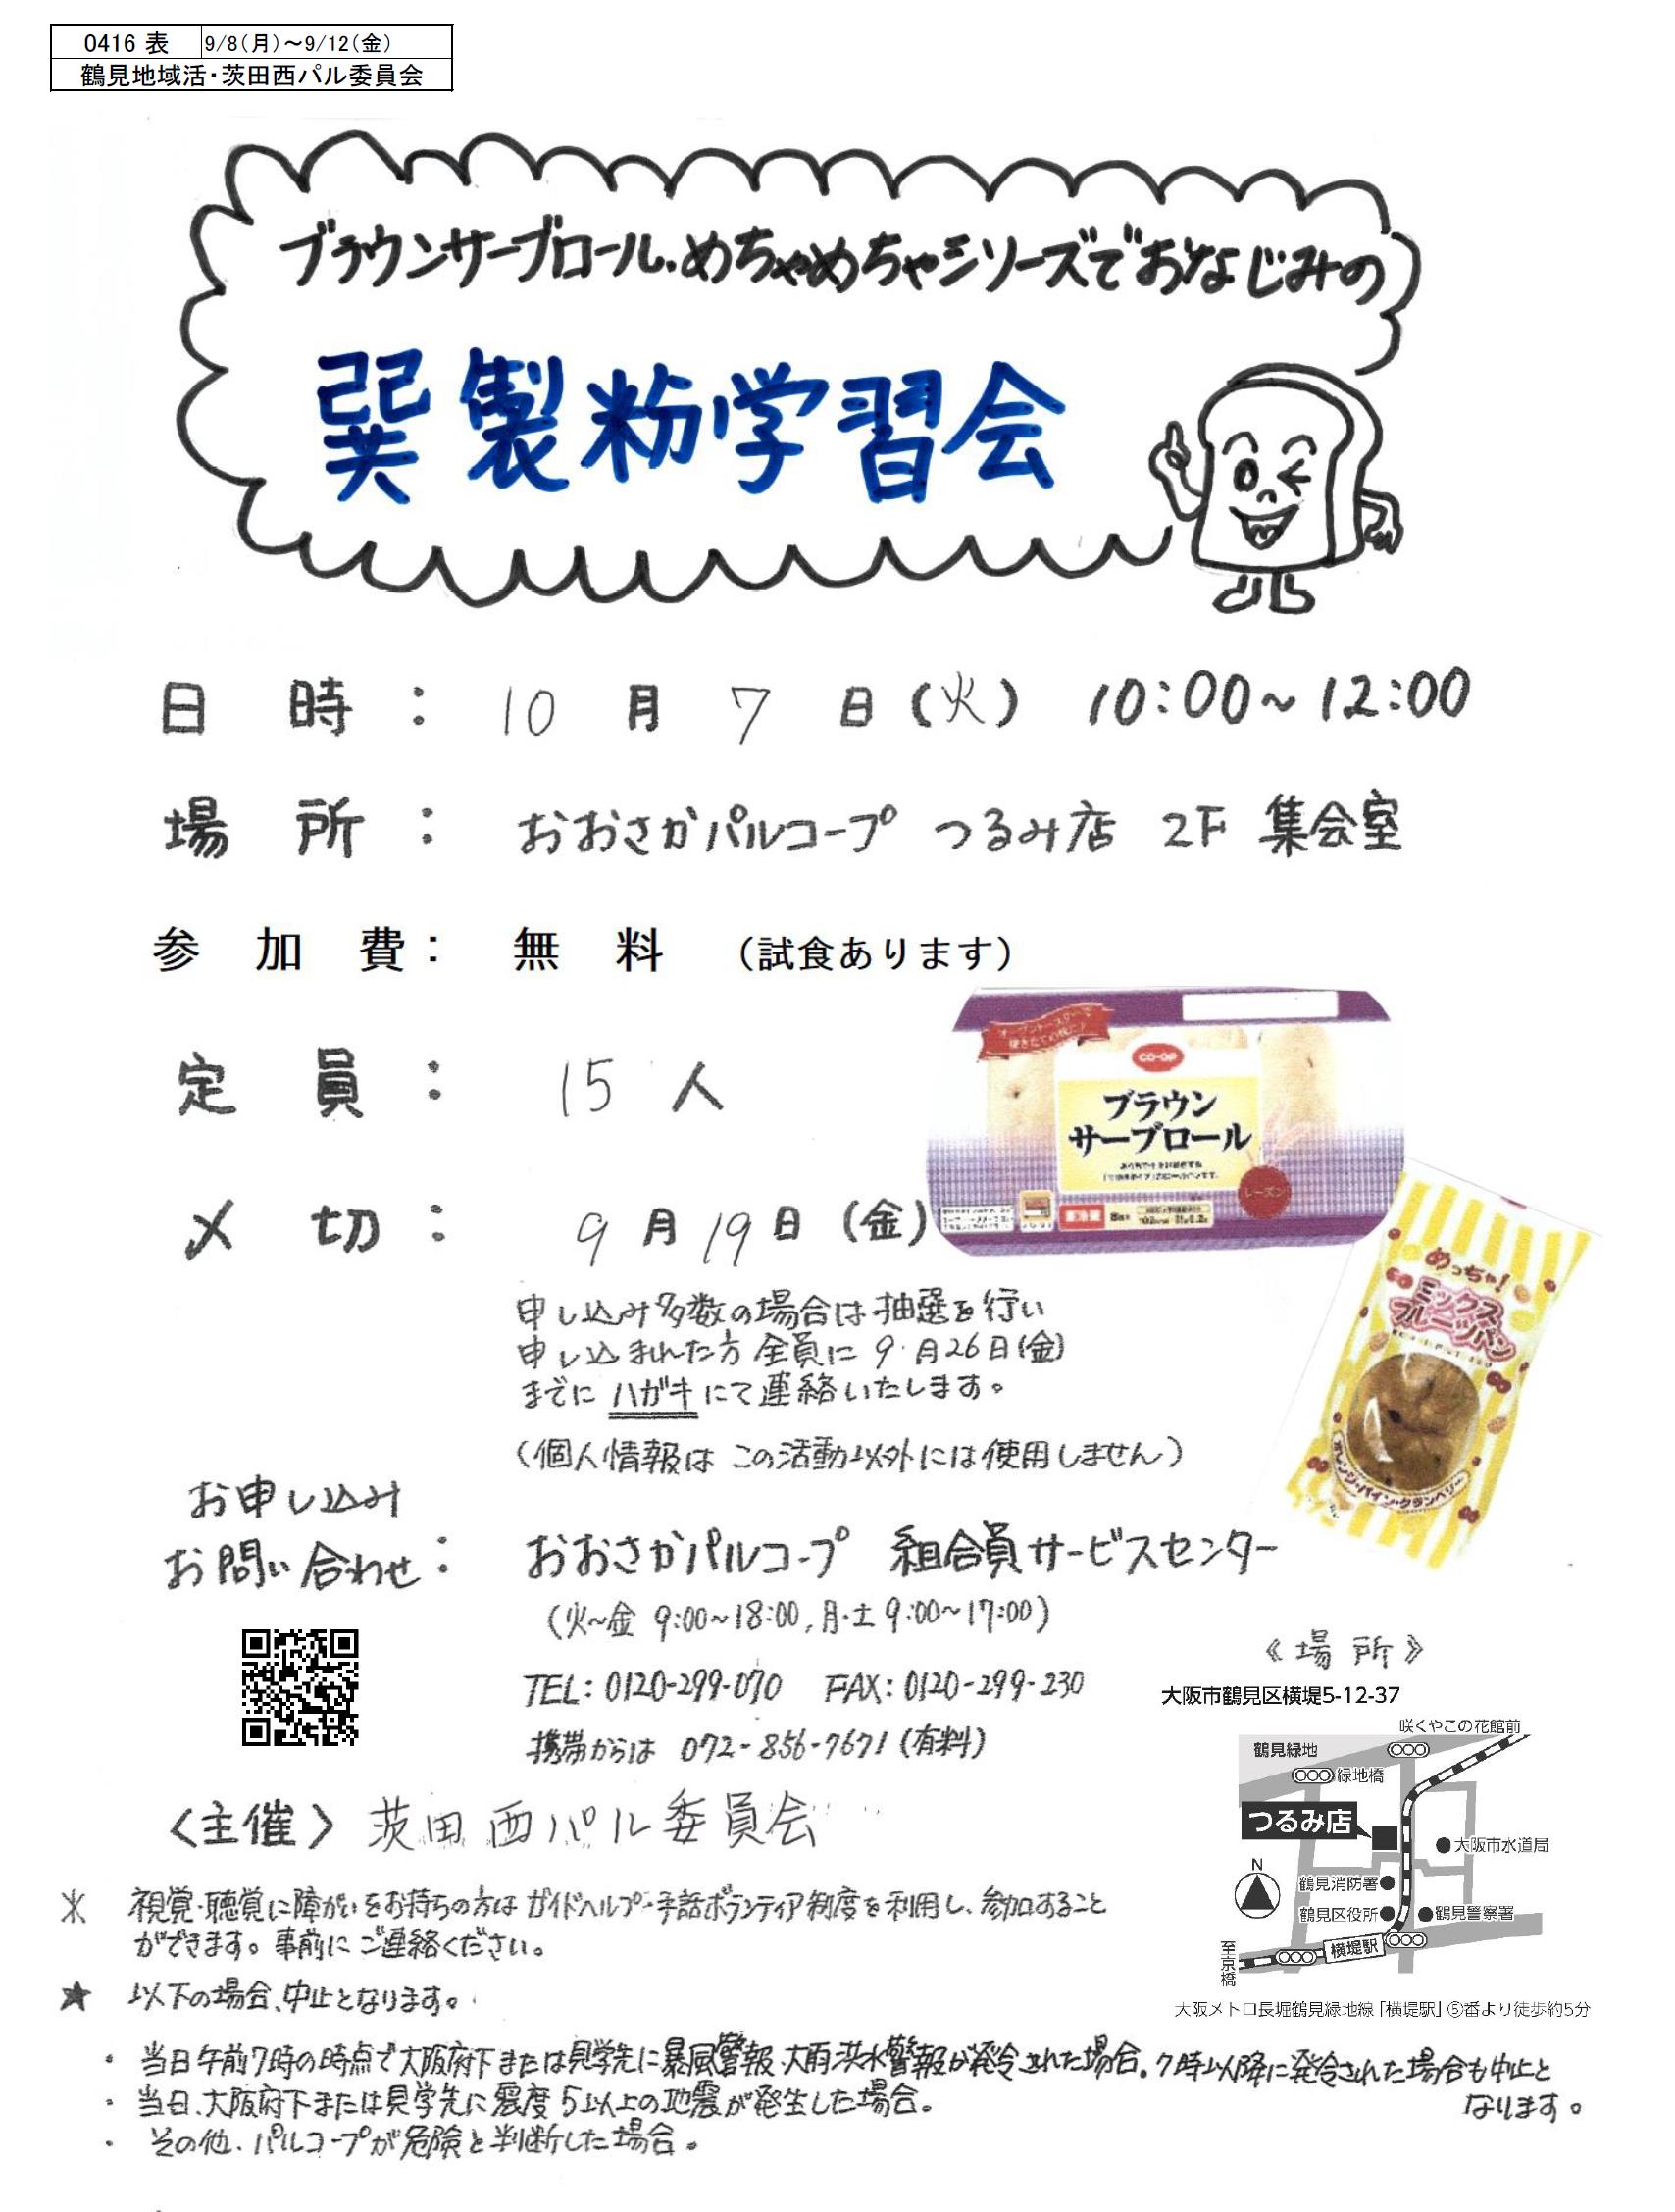 0416 表 9/8(月)～9/12(金)
鶴見地域活・茨田西パル委員会
ブラウンサーブロール、めちゃめちゃシリーズでおなじみの
巽製粉学習会
日時：10月7日(火) 10:00~12:00
場所：おおさかパルコープ つるみ店 2F 集会室
参加費： 無料 (試食あります)
定員：15人
〆切：9月19日(金)
申し込み多数の場合は抽選を行い
申し込まれた方全員に9月26日(金)
までにハガキにて連絡いたします。
(個人情報はこの活動以外には使用しません)
オーブントースターで
焼きたての味に!
CO-OP
ブラウン
サーブロール
レーズン
要冷蔵
めっちゃ!
ミックス
フルーツパン
オレンジ・パイン・クランベリー
お申し込み
お問い合わせ：おおさかパルコープ 組合員サービスセンター
(火~金 9:00~18:00, 月・土 9:00~17:00)
TEL: 0120-299-070 FAX: 0120-299-230
携帯からは 072-856-7671 (有料)
〈主催〉茨田西パル委員会
《場所》
大阪市鶴見区横堤5-12-37
咲くやこの花館前
鶴見緑地
緑地橋
つるみ店
大阪市水道局
N
鶴見消防署
鶴見区役所
鶴見警察署
横堤駅
至京橋
大阪メトロ長堀鶴見緑地線「横堤駅」⑤番より徒歩約5分
※ 視覚・聴覚に障がいをお持ちの方はガイドヘルプ・手話ボランティア制度を利用し、参加すること
ができます。事前にご連絡ください。
★ 以下の場合、中止となります。
・当日午前7時の時点で大阪府下または見学先に暴風警報、大雨洪水警報が発令された場合。7時以降に発令された場合も中止と
なります。
・当日、大阪府下または見学先に震度5以上の地震が発生した場合。
・その他、パルコープが危険と判断した場合。